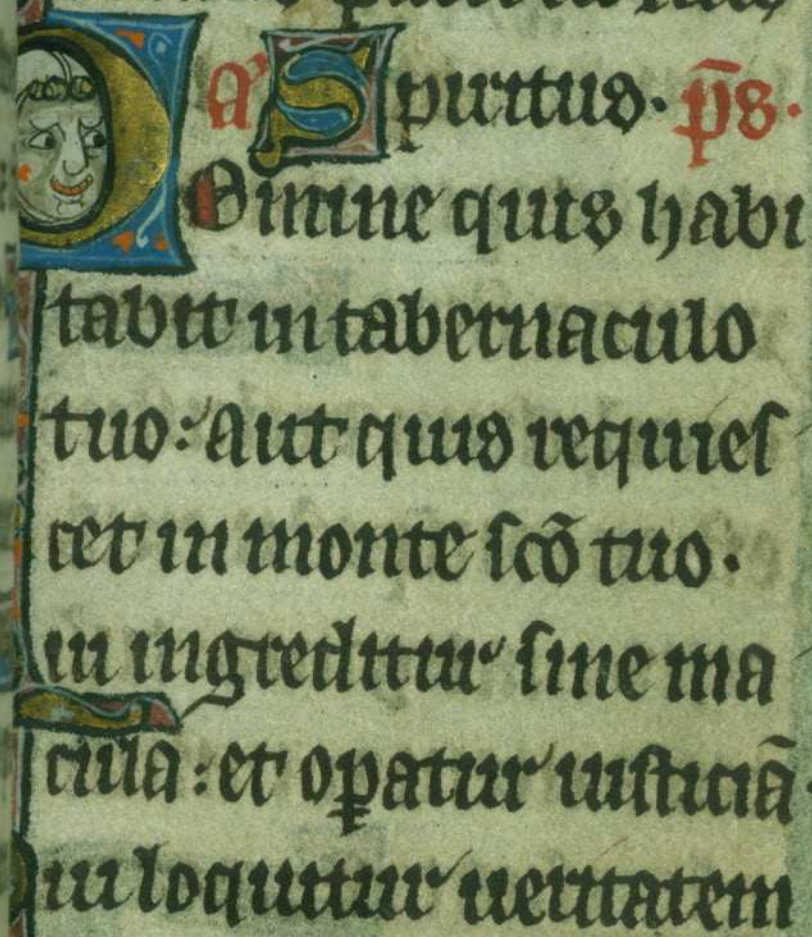 a' Spiritus. p̄s.
Domine quis habi
tabit in tabernaculo
tuo: aut quis requies
cet in monte scō tuo.
ui ingreditur sine ma
cula: et oꝑatur iusticiā
ui loquitur ueritatem